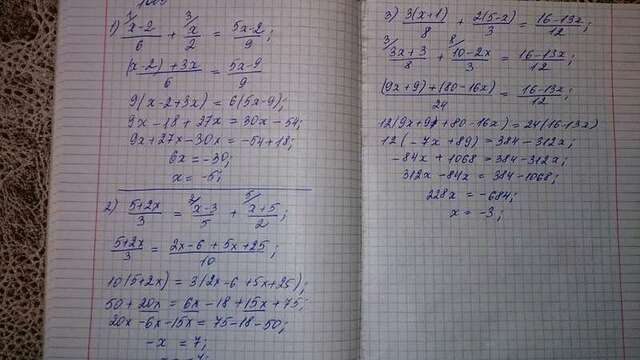 1) (x-2)/6 + 3/ x/2 = (5x-2)/9;
((x-2)+3x)/6 = (5x-9)/9
9(x-2+3x) = 6(5x-9);
9x-18+27x = 30x-54;
9x+27x-30x = -54+18;
6x = -30;
x = -5;
2) (5+2x)/3 = 2/ (x-3)/5 + 5/ (x+5)/2;
(5+2x)/3 = (2x-6+5x+25)/10;
10(5+2x) = 3(2x-6+5x+25);
50+20x = 6x-18+15x+75;
20x-6x-15x = 75-18-50;
-x = 7;
3) 3(x+1)/8 + 2(5-x)/3 = (16-13x)/12;
3/ (3x+3)/8 + 8/ (10-2x)/3 = (16-13x)/12;
((9x+9)+(80-16x))/24 = (16-13x)/12;
12(9x+9+80-16x) = 24(16-13x)
12(-7x+89) = 384-312x;
-84x+1068 = 384-312x;
312x-84x = 384-1068;
228x = -684;
x = -3;